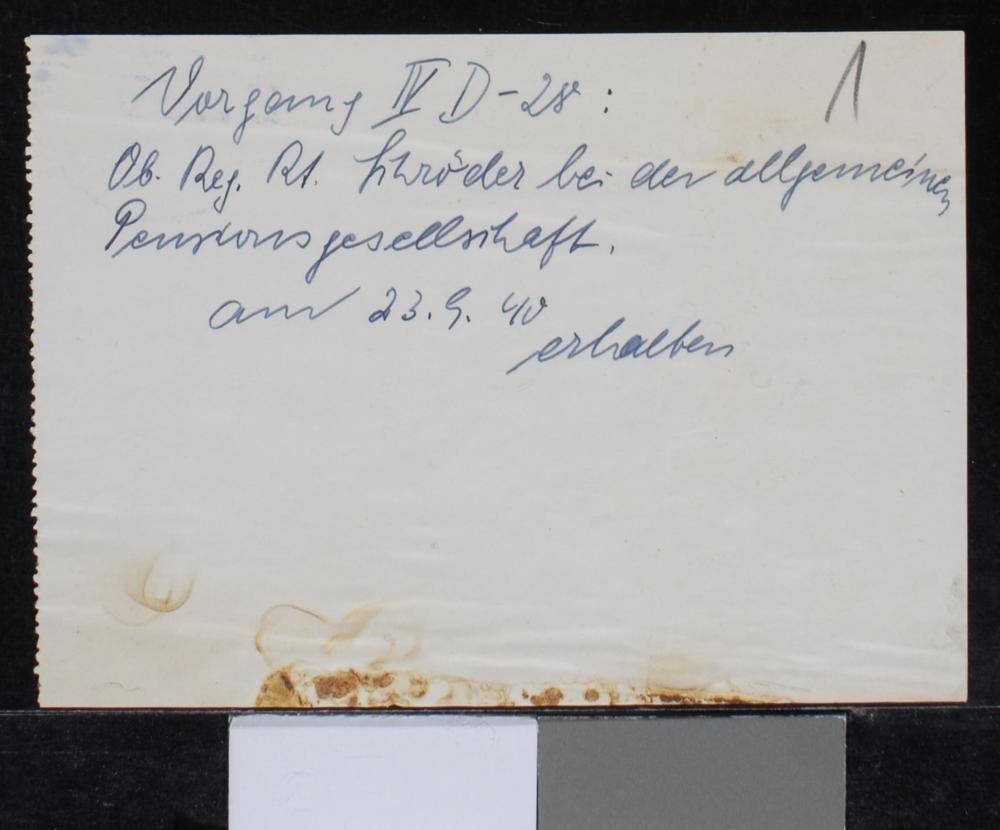 1
Vorgang IV D - 28 :
Ob. Reg. Rt. Schröder bei der allgemeinen
Pensionsgesellschaft.
am 23. 9. 40
erhalten